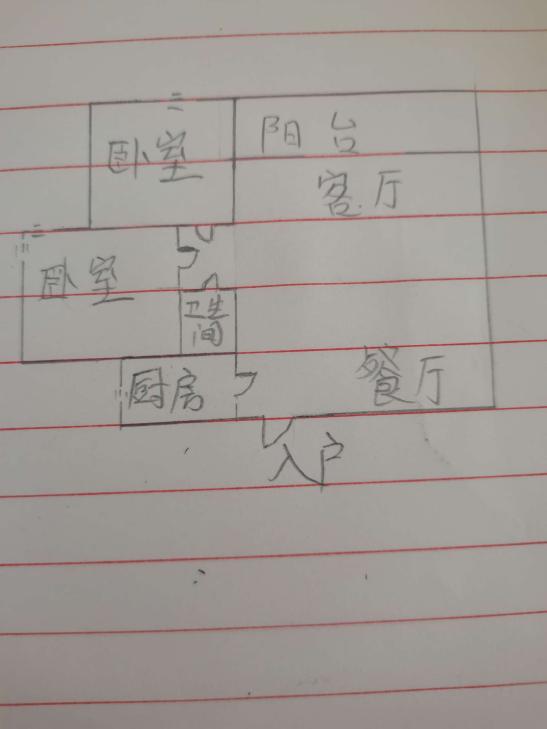 阳台
卧室
客厅
卧室
卫生
间
厨房
餐厅
入户